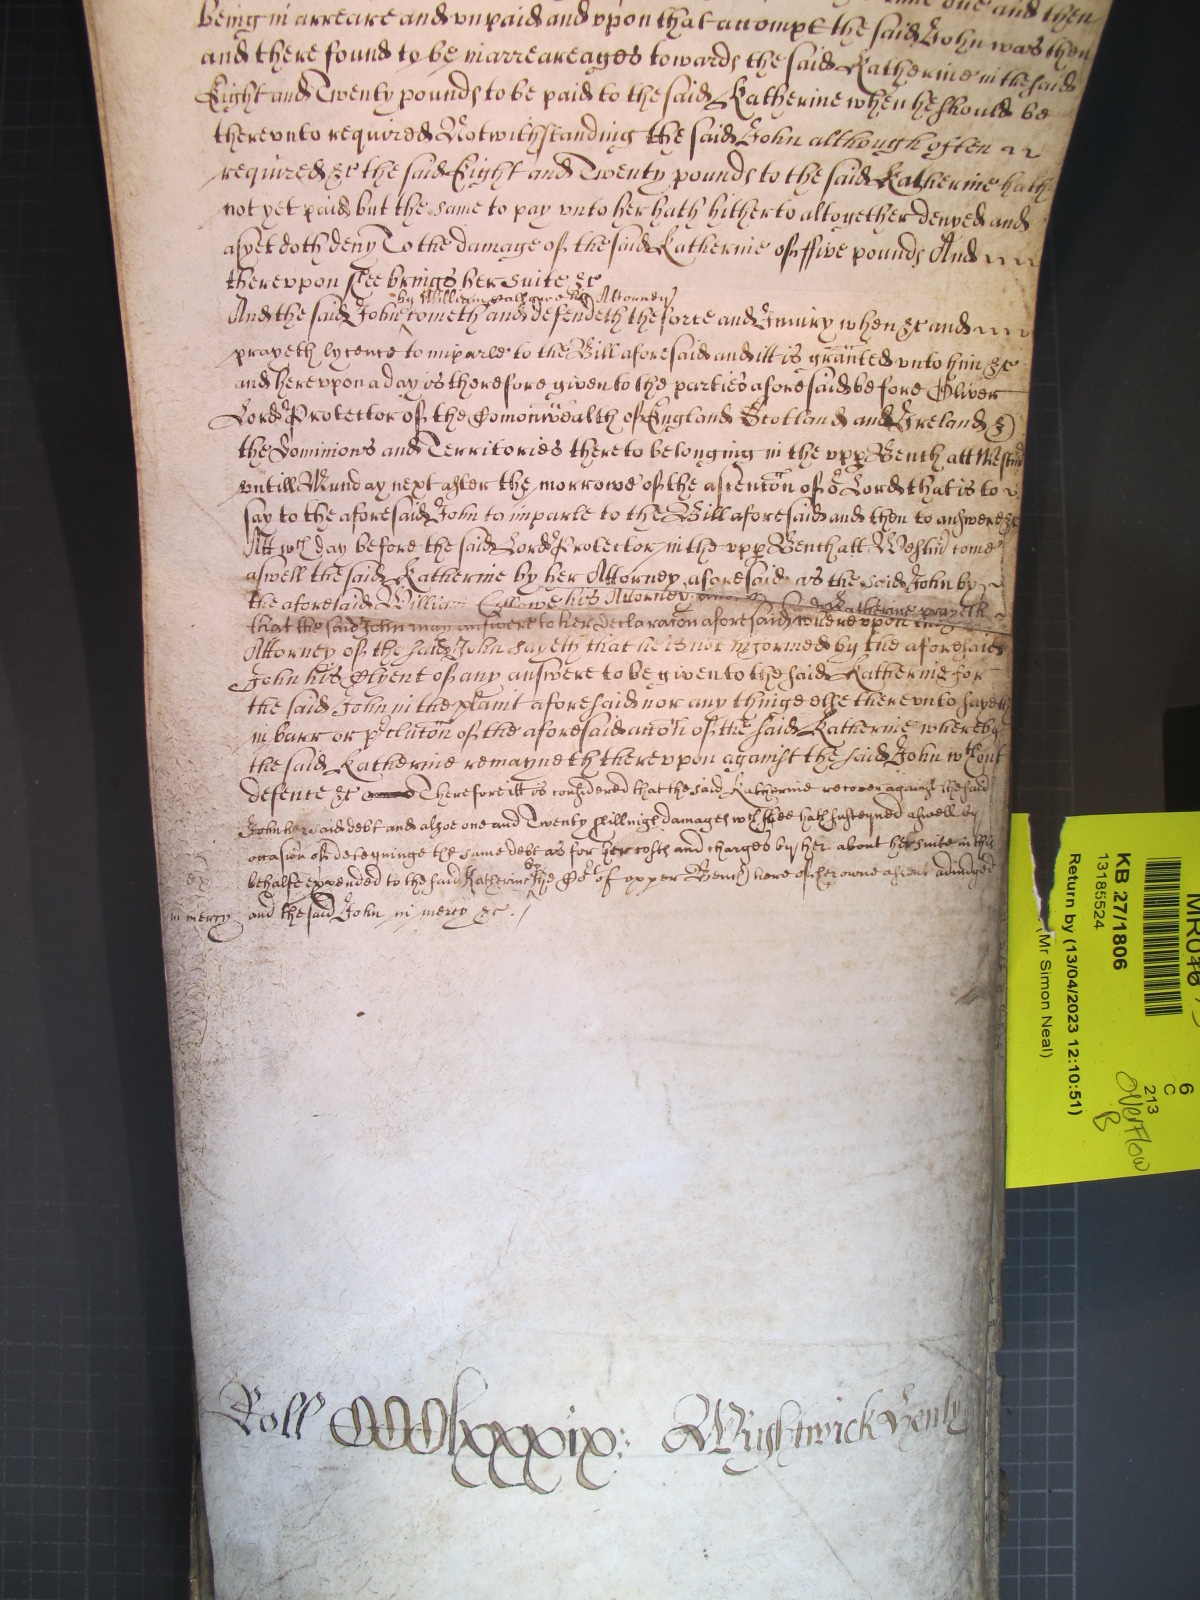 being in arreare and vnpaid and vpon that accompt the said John was then
and there found to be in arrearages towards the said Katherine in the said
Eight and Twenty pounds to be paid to the said Katherine when he should be
therevnto required Notwithstanding the said John although often
required &c the said Eight and Twenty pounds to the said Katherine hath
not yet paid but the same to pay vnto her hath hitherto altogether denyed and
as yet doth deny To the damage of the said Katherine of ffive pounds And
therevpon shee brings her suite &c
by William his Attorney
And the said John cometh and defendeth the force and Iniury when &c and
prayeth lycence to imparle to the Bill aforesaid and itt is graunted vnto him &c
and herevpon a day is therefore given to the parties aforesaid before Oliver
Lord Protector of the Comonwealth of England Scotland and Ireland &
the Dominions and Territories thereto belonging in the vpp Bench att Westmr
vntill Munday next after the morrowe of the ascencon of or Lord that is to
say to the aforesaid John to imparle to the Bill aforesaid and then to answere &c
Att wch day before the said Lord Protector in the vpp Bench att Westm come
aswell the said Katherine by her Attorney aforesaid as the said John by
the aforesaid William his Attorney Katherine prayeth
that the said John may answere to her declaracon aforesaid wherevpon
Attorney of the said John sayeth that he is not informed by the aforesaid
John his Clyent of any answere to be given to the said Katherine for
the said John in the plaint aforesaid nor any thinge else therevnto sayeth
in barr or pclucon of the aforesaid accon of the said Katherine whereby
the said Katherine remayneth therevpon against the said John wthout
defence &c Therefore itt is considered that the said Katherine recover against the said
John her said debt and alsoe one and Twenty shillings damages wch shee hath susteyned aswell by
occasion of deteyninge the same debt as for her costs and charges by her about her suite in this
behalfe expended to the said Katherine by the Cort of vpper Bench here of her owne assent adiudged
in mercy and the said John in mercy &c.
Roll CCClxxxix: Wightwick Henly
MR046
6
C
213
Overflow
B
KB 27/1806
13185524
Return by (13/04/2023 12:10:51)
(Mr Simon Neal)